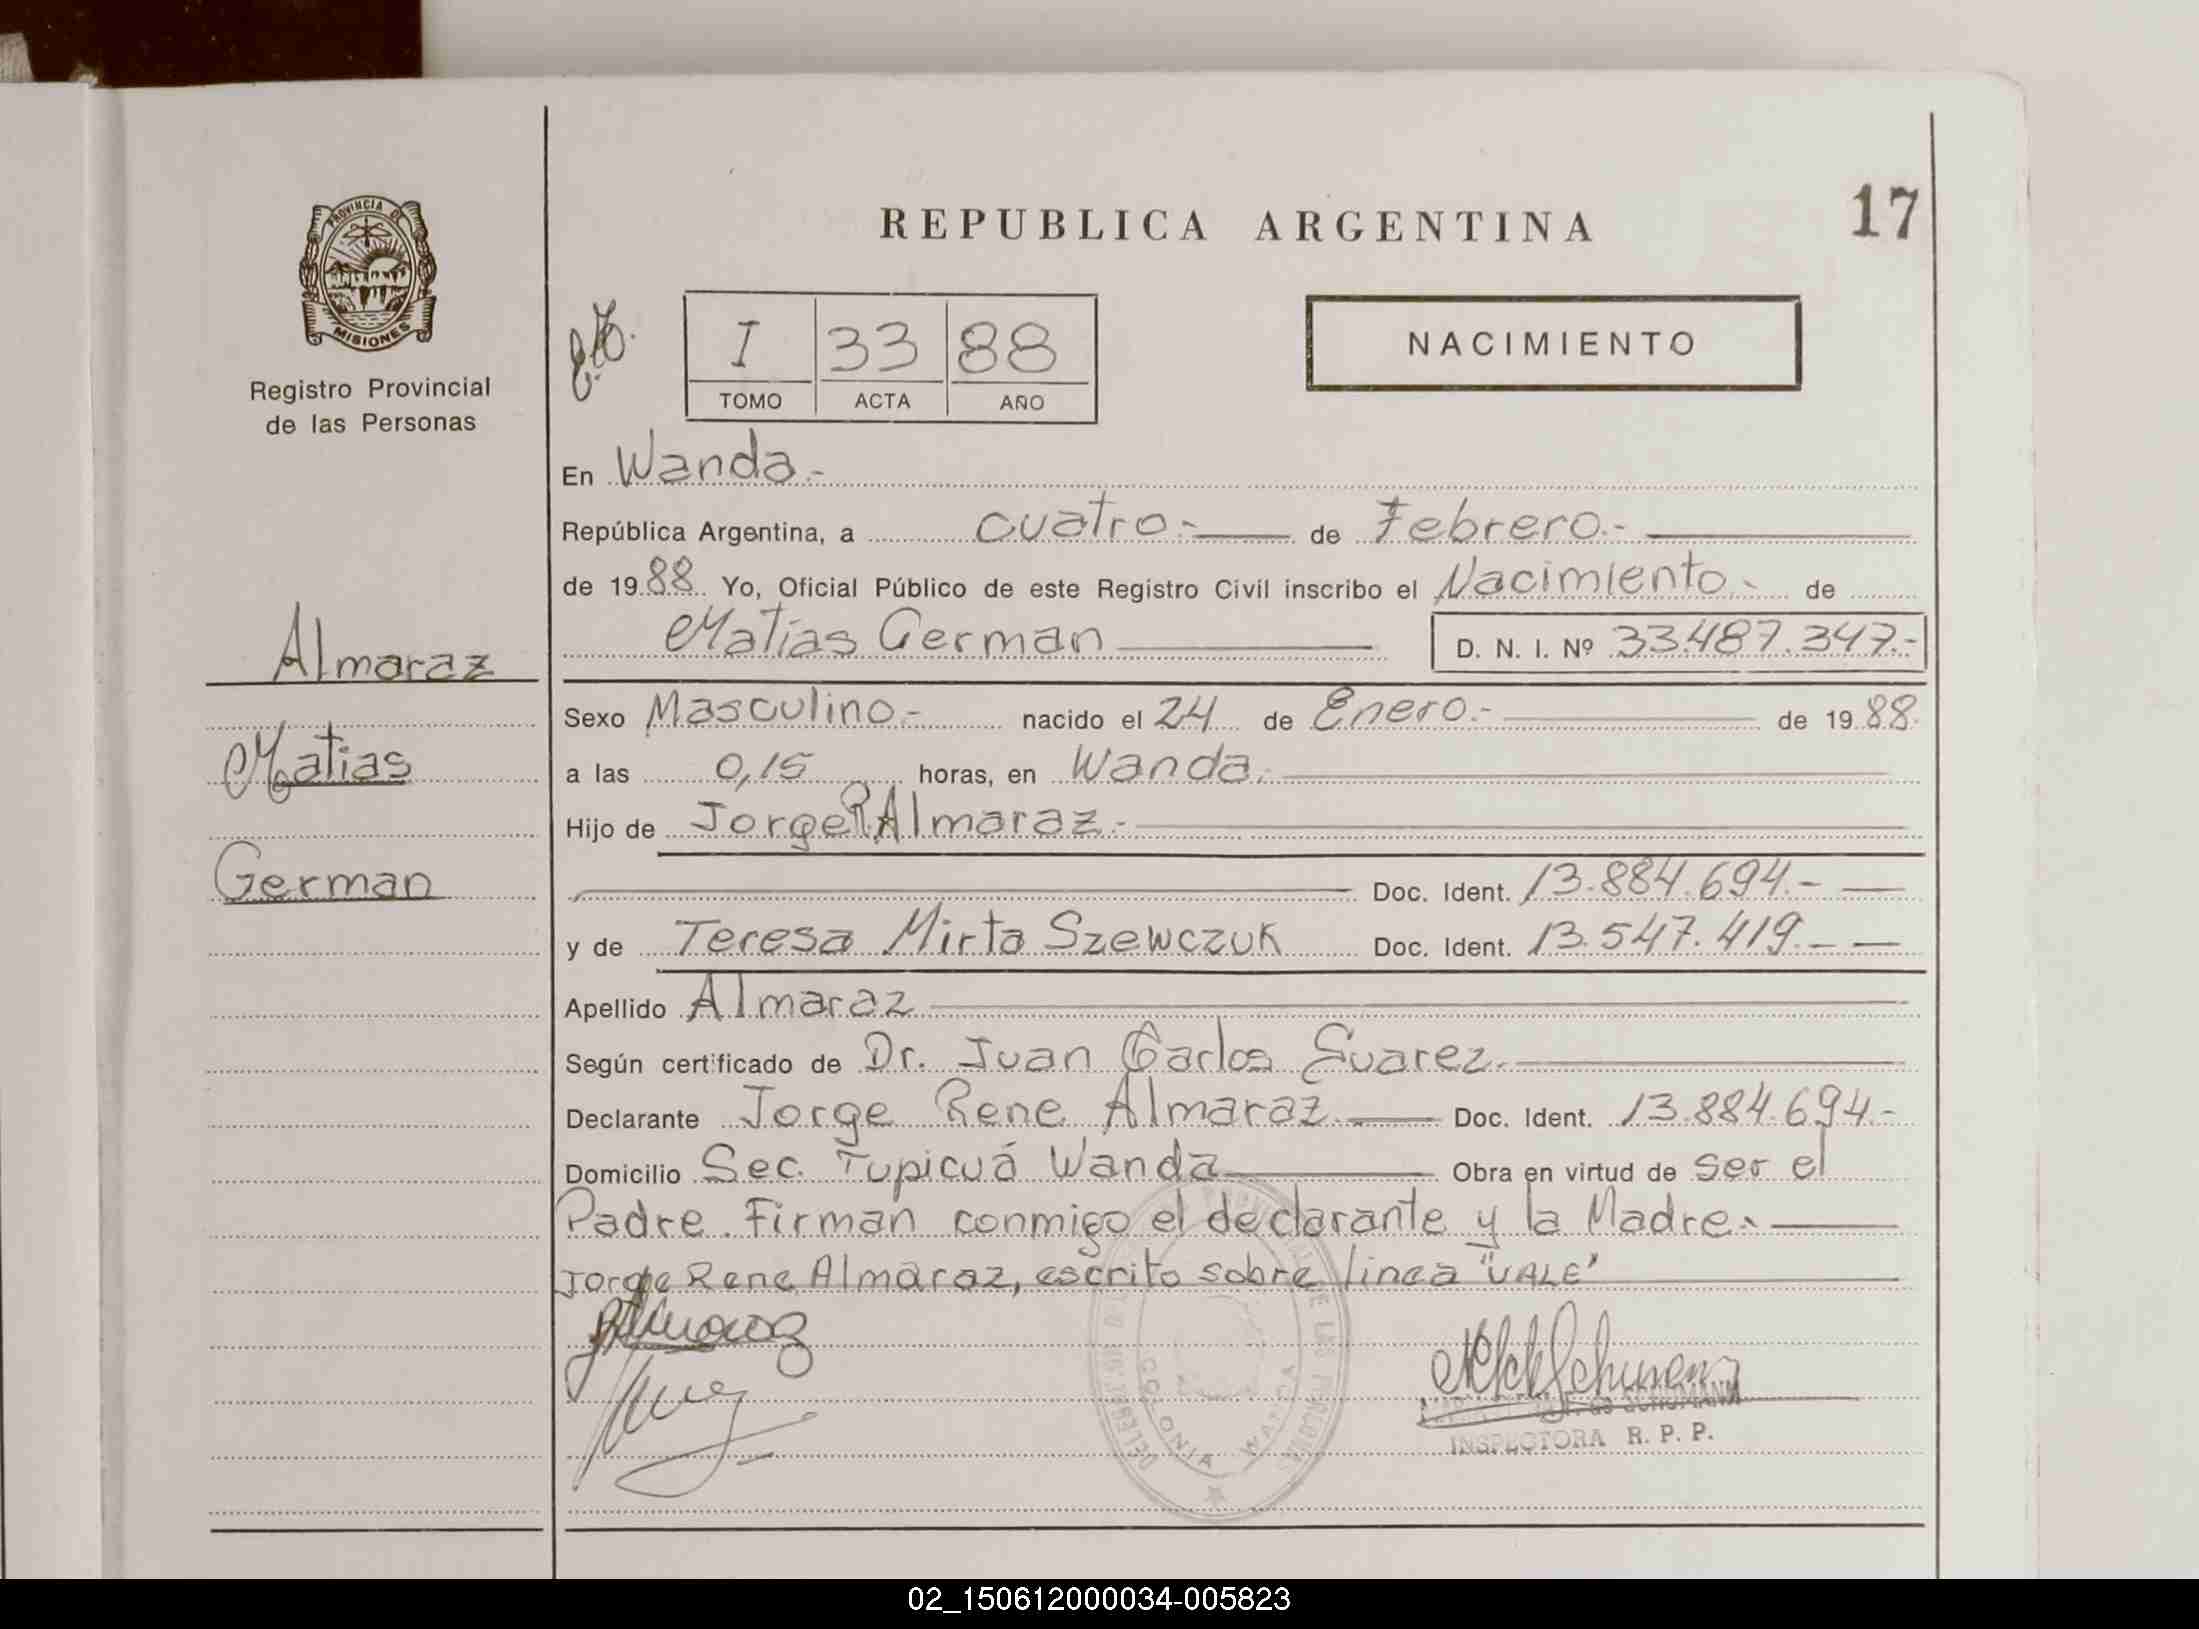 17
PROVINCIA DE
MISIONES
Registro Provincial
de las Personas
REPUBLICA ARGENTINA
I 33 88
TOMO ACTA AÑO
NACIMIENTO
En Wanda.-
República Argentina, a cuatro.- de Febrero.-
de 1988 Yo, Oficial Público de este Registro Civil inscribo el Nacimiento.- de
Matias German D. N. I. Nº 33.487.347.-
Almaraz
Matias
German
Sexo Masculino.- nacido el 24 de Enero.- de 1988.
a las 0,15 horas, en Wanda.
Hijo de Jorge R. Almaraz.-
Doc. Ident. 13.884.694.-
y de Teresa Mirta Szewczuk Doc. Ident. 13.547.419.-
Apellido Almaraz
Según certificado de Dr. Juan Carlos Suarez.
Declarante Jorge Rene Almaraz Doc. Ident. 13.884.694.-
Domicilio Sec. Tupicuá Wanda Obra en virtud de ser el
Padre. Firman conmigo el declarante y la Madre.-
Jorge Rene Almaraz, escrito sobre linea "VALE"
COLONIA WANDA
SCHUMANN
INSPECTORA R. P. P.
02_150612000034-005823